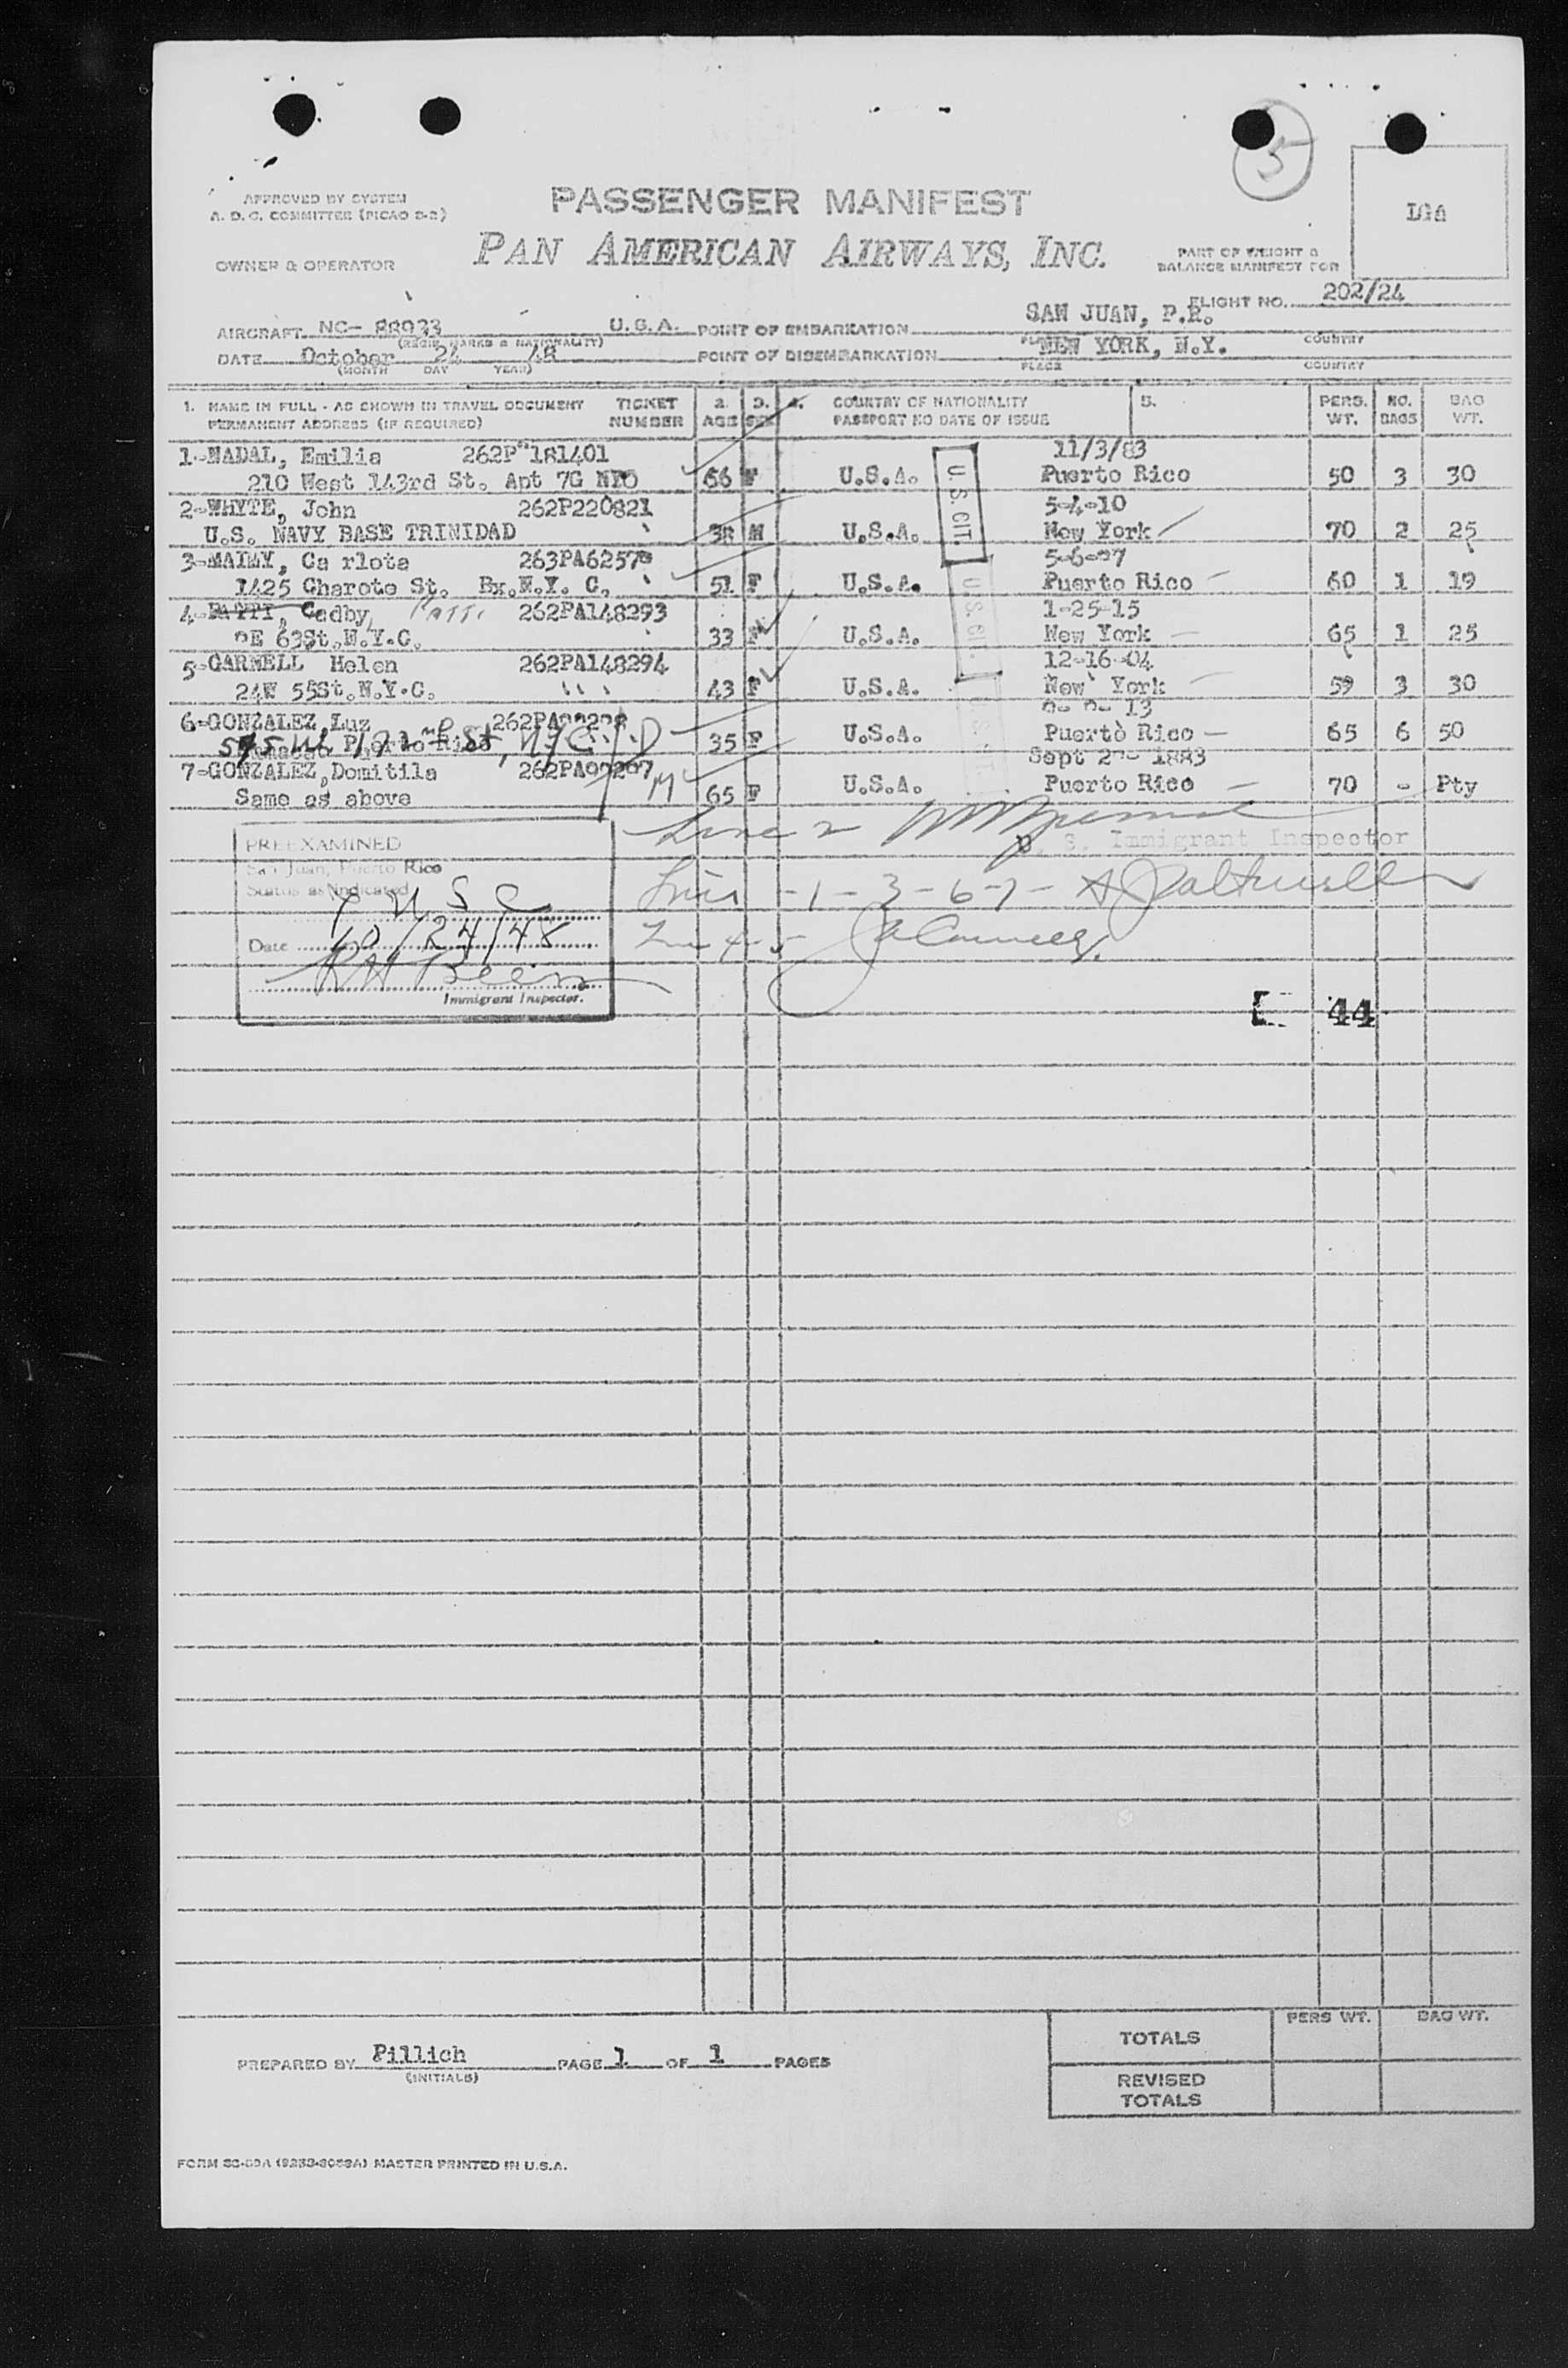 5
APPROVED BY SYSTEM
A. D. C. COMMITTEE (PICAO 2-2)
PASSENGER MANIFEST
LGA
PAN AMERICAN AIRWAYS, INC.
OWNER & OPERATOR
PART OF WEIGHT &
BALANCE MANIFEST FOR
FLIGHT NO. 202/24
AIRCRAFT NC- 88933 U.S.A. POINT OF EMBARKATION SAN JUAN, P.R.
(REGIS. MARKS & NATIONALITY) COUNTRY
DATE October 24 48 POINT OF DISEMBARKATION NEW YORK, N.Y.
(MONTH DAY YEAR) PLACE COUNTRY
1. NAME IN FULL - AS SHOWN IN TRAVEL DOCUMENT TICKET 2. 3. 4. COUNTRY OF NATIONALITY 5. PERS. NO. BAG
PERMANENT ADDRESS (IF REQUIRED) NUMBER AGE SEX PASSPORT NO DATE OF ISSUE WT. BAGS WT.
1-NADAL, Emilia 262P 181401 11/3/83
210 West 143rd St. Apt 7G 56 F U.S.A. Puerto Rico 50 3 30
2-WHYTE, John 262P220821 5-4-10
U.S. NAVY BASE TRINIDAD 38 M U.S.A. New York 70 2 25
U.S. CIT.
3- Ca rlota 263PA6257 5-6-97
1425 Charote St. Bx.N.Y. C. 51 F U.S.A. Puerto Rico 60 1 19
U.S. CIT.
4-PATTI, Cadby, Patti 262PA148293 1-25-15
63St.N.Y.C. 33 F U.S.A. New York 65 1 25
5-GARNELL Helen 262PA148294 12-16-04
24W 55St.N.Y.C. 43 F U.S.A. New York 59 3 30
6-GONZALEZ, Luz 13
Puerto Rico 35 F U.S.A. Puerto Rico 65 6 50
7-GONZALEZ, Domitila Sept 1883
Same as above M 65 F U.S.A. Puerto Rico 70 - Pty
PREEXAMINED
San Juan, Puerto Rico
Status as indicated
U S C
Date 10/24/48
Immigrant Inspector.
Line 2
U. S. Immigrant Inspector
Lines -1-3-6-7-
Line 4-5
44
PREPARED BY Pillich PAGE 1 OF 1 PAGES
(INITIALS)
PERS WT. BAG WT.
TOTALS
REVISED
TOTALS
MASTER PRINTED IN U.S.A.